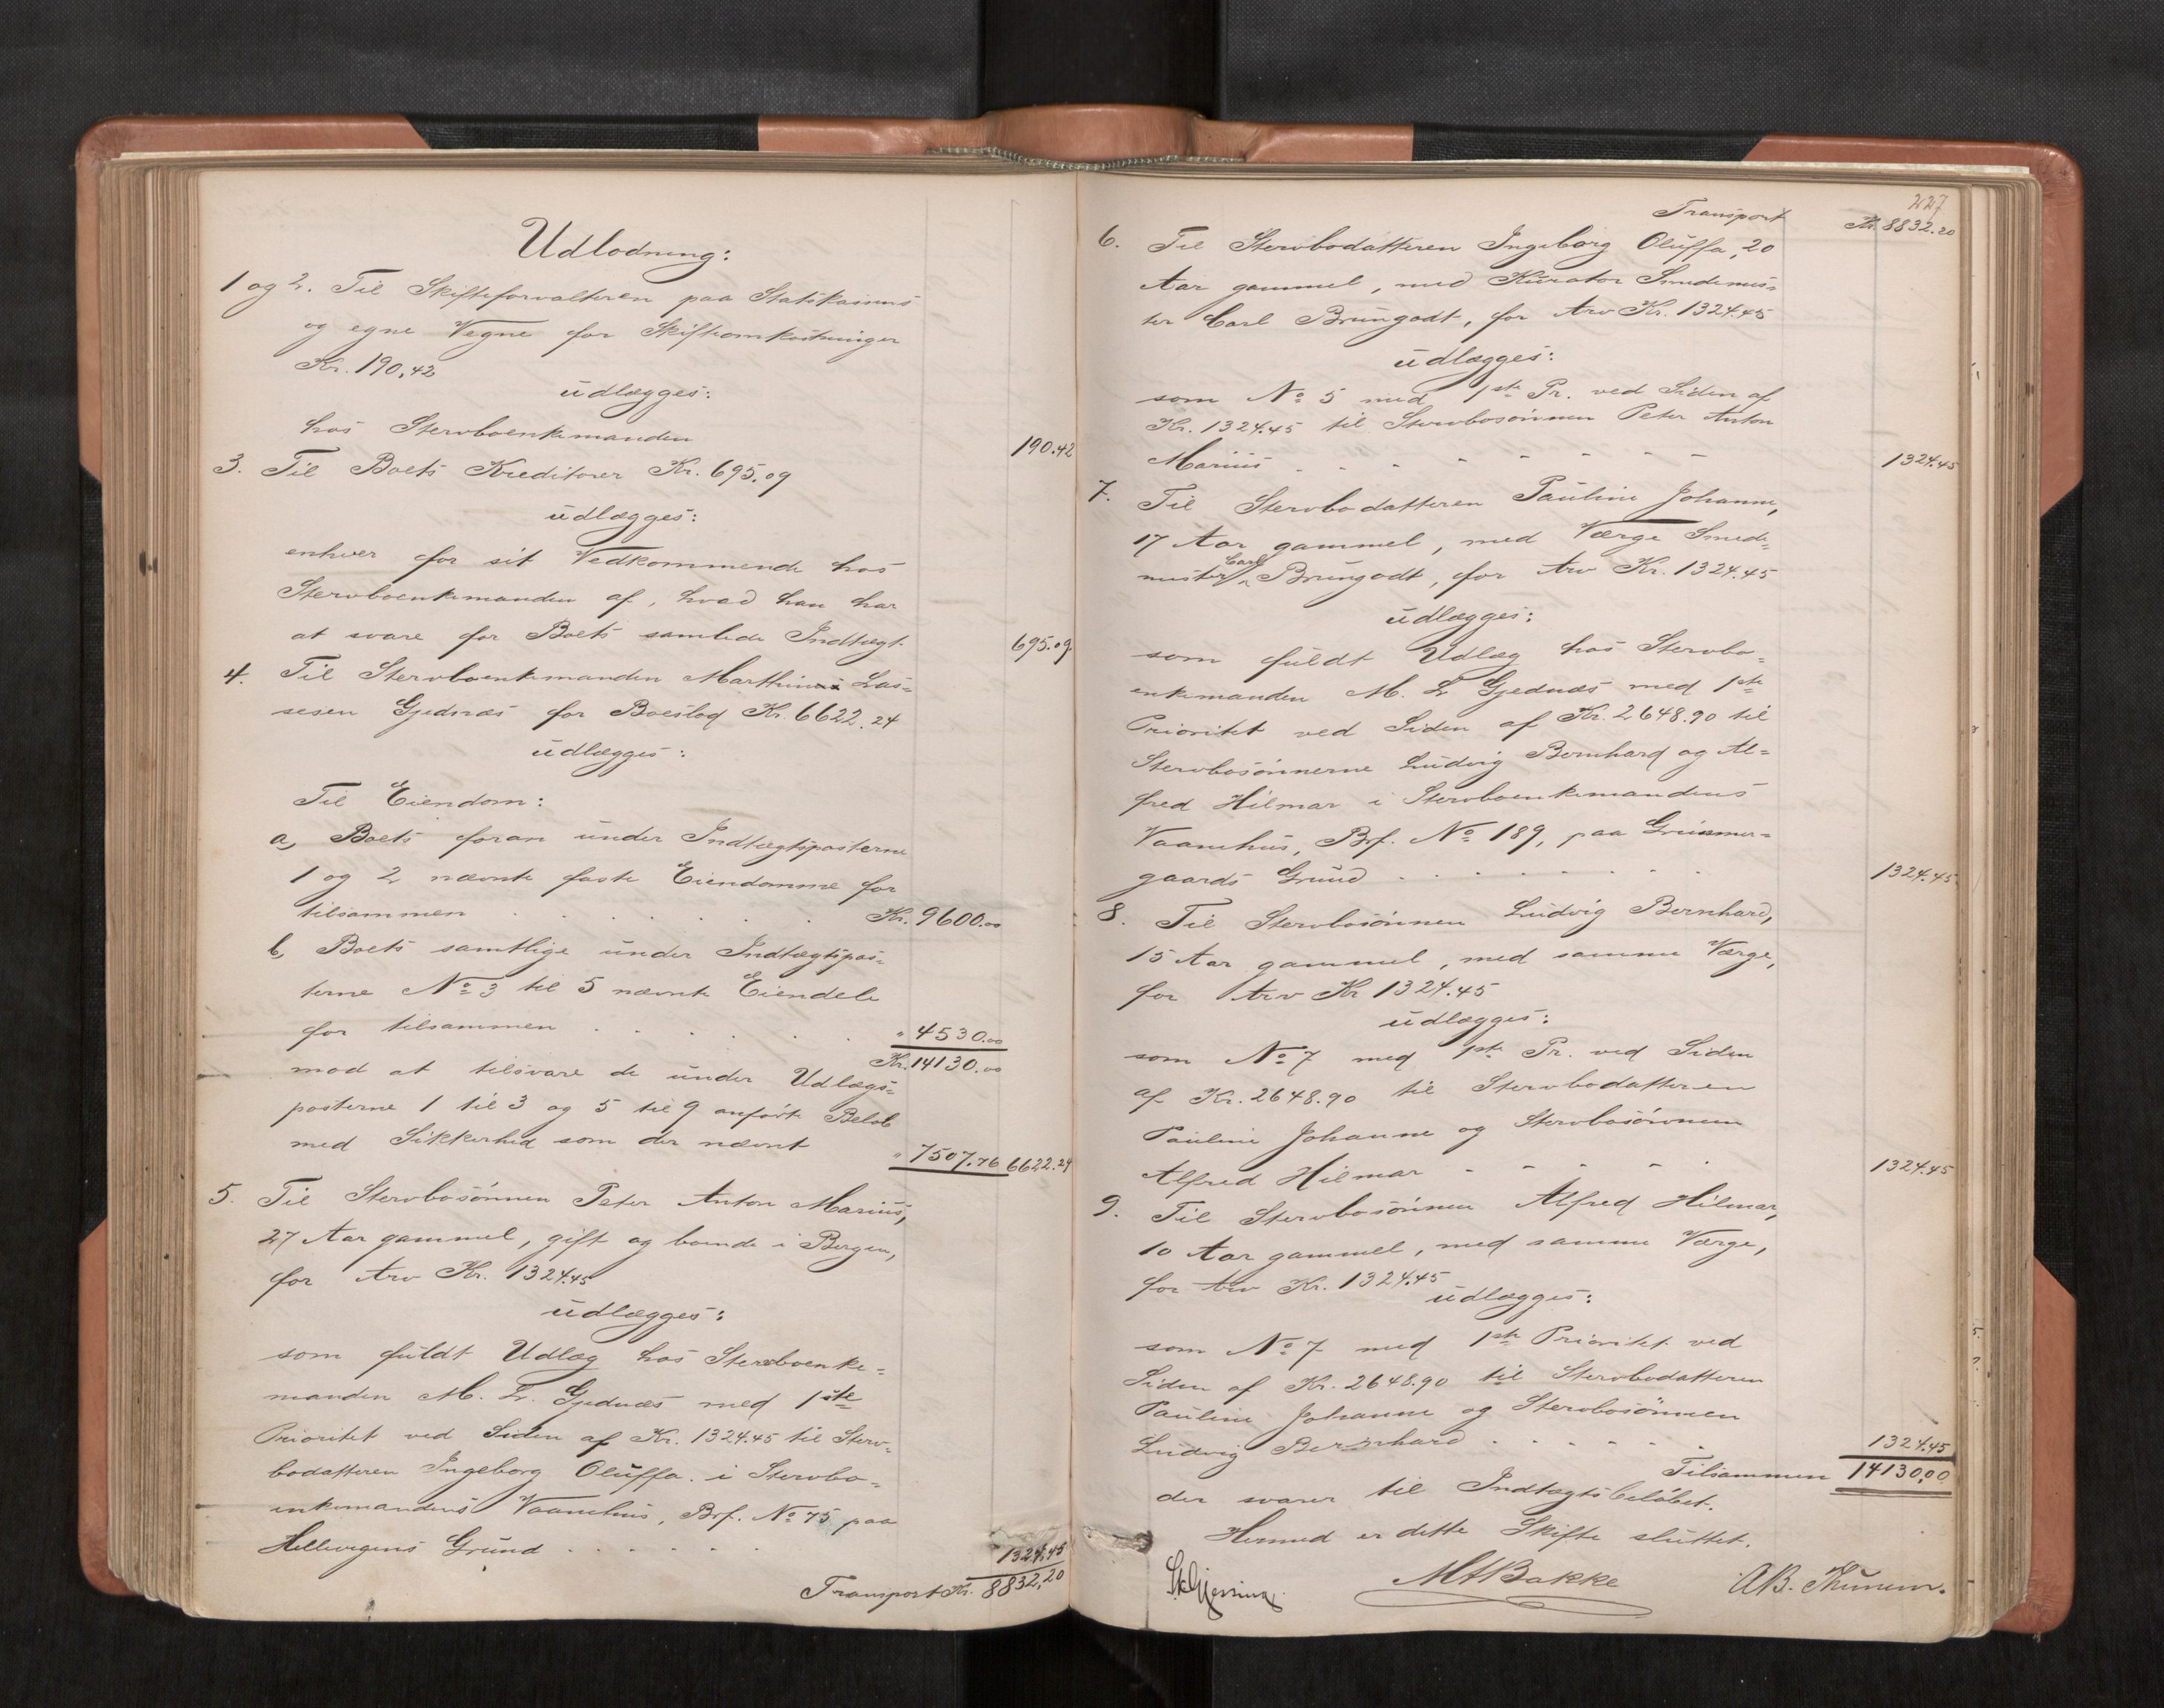 Udlodning:
1 og 2. Til Skifteforvalteren paa Statskassens
og egne Vegne for Skifteomkostninger
Kr. 190.42
udlægges:
hos Stervboenkemanden 190.42
3. Til Boets Kreditorer Kr. 695.09
udlægges:
enhver for sit Vedkommende hos
Stervboenkemanden af, hvad han har
at svare for Boets samlede Indtægt. 695.09
4. Til Stervboenkemanden Marthinus Las=
sesen Gjednæs for Boeslod Kr. 6622.24
udlægges:
Til Eiendom:
a, Boets foran under Indtægtsposterne
1 og 2 nævnte faste Eiendomme for
tilsammen . . . . . . Kr. 9600.00
b, Boets samtlige under Indtægtspos=
terne No 3 til 5 nævnte Eiendele
for tilsammen . . . . . " 4530.00
Kr. 14130.00
mod at tilsvare de under Udlægs=
posterne 1 til 3 og 5 til 9 anførte Beløb
med Sikkerhed som der nævnt " 7507.76 6622.24
5. Til Stervbosønnen Peter Anton Marius,
27 Aar gammel, gift og boende i Bergen,
for Arv Kr. 1324.45
udlægges:
som fuldt Udlæg hos Stervboenke=
manden M. L. Gjednæs med 1ste
Prioritet ved Siden af Kr. 1324.45 til Sterv=
bodatteren Ingeborg Oluffa i Stervbo=
enkemandens Vaanehus, Brf. No 75 paa
Hellevigens Grund . . . . . . 1324.45
Transport Kr. 8832,20
227
Transport Kr. 8832.20
6. Til Stervbodatteren Ingeborg Oluffa, 20
Aar gammel, med Kurator Smedemes=
ter Carl Brungodt, for Arv Kr. 1324.45
udlægges:
som No 5 med 1ste Pr. ved Siden af
Kr. 1324.45 til Stervbosønnen Peter Anton
Marius . . . . . . . 1324.45
7. Til Stervbodatteren Pauline Johanne,
17 Aar gammel, med Værge Smede=
mester Carl Brungodt, for Arv Kr. 1324.45
udlægges:
som fuldt Udlæg hos Stervbo=
enkemanden M. L. Gjednæs med 1ste
Prioritet ved Siden af Kr. 2648.90 til
Stervbosønnerne Ludvig Bernhard og Al=
fred Hilmar i Stervboenkemandens
Vaanehus, Brf. No 189, paa
gaards Grund . . . . . . . 1324.45
8. Til Stervbosønnen Ludvig Bernhard,
15 Aar gammel, med samme Værge,
for Arv Kr 1324.45
udlægges:
som No 7 med 1ste Pr. ved Siden
af Kr. 2648.90 til Stervbodatteren
Pauline Johanne og Stervbosønnen
Alfred Hilmar - - - - . 1324.45
9. Til Stervbosønnen Alfred Hilmar,
10 Aar gammel, med samme Værge,
for Arv Kr. 1324.45
udlægges:
som No 7 med 1ste Prioritet ved
Siden af Kr. 2648.90 til Stervbodatteren
Pauline Johanne og Stervbosønnen
Ludvig Bernhard . . . . . . 1324.45
Tilsammen 14130,00
der svarer til Indtægtsbeløbet.
Hermed er dette Skifte sluttet.
MABakke
AB. Thunem.